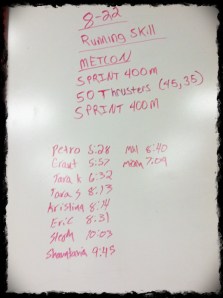 8-22
Running Skill
METCON
SPRINT 400m
50 Thrusters (45,35)
SPRINT 400M
Petro 5:28
Grant 5:57
Tara K 6:32
Tara S 8:13
Kristina 8:14
Eric 8:31
10:03
9:45
Mal 6:40
7:09